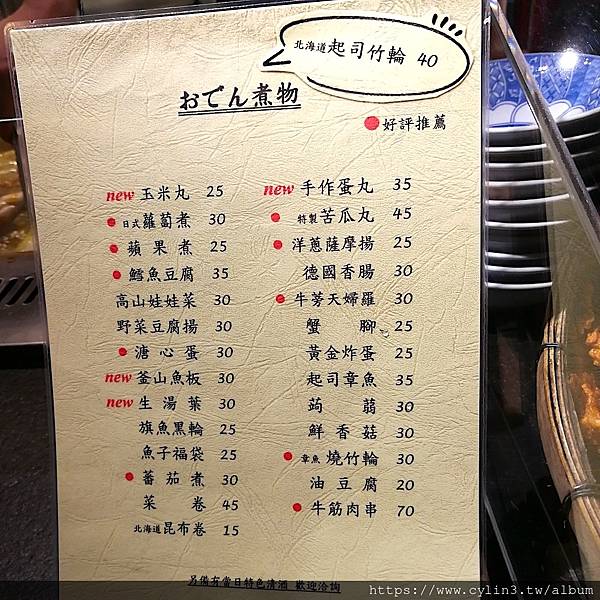 北海道起司竹輪 40
おでん煮物
好評推薦
new 玉米丸 25
日式蘿蔔煮 30
蘋果煮 25
鱈魚豆腐 35
高山娃娃菜 30
野菜豆腐揚 30
溏心蛋 30
new 釜山魚板 30
new 生湯葉 30
旗魚黑輪 25
魚子福袋 25
蕃茄煮 30
菜卷 45
北海道昆布卷 15
new 手作蛋丸 35
特製苦瓜丸 45
洋蔥薩摩揚 25
德國香腸 30
牛蒡天婦羅 30
蟹腳 25
黃金炸蛋 25
起司章魚 35
蒟蒻 30
鮮香菇 30
章魚燒竹輪 30
油豆腐 20
牛筋肉串 70
另備有當日特色清酒 歡迎洽詢
https://www.cylin3.tw/album